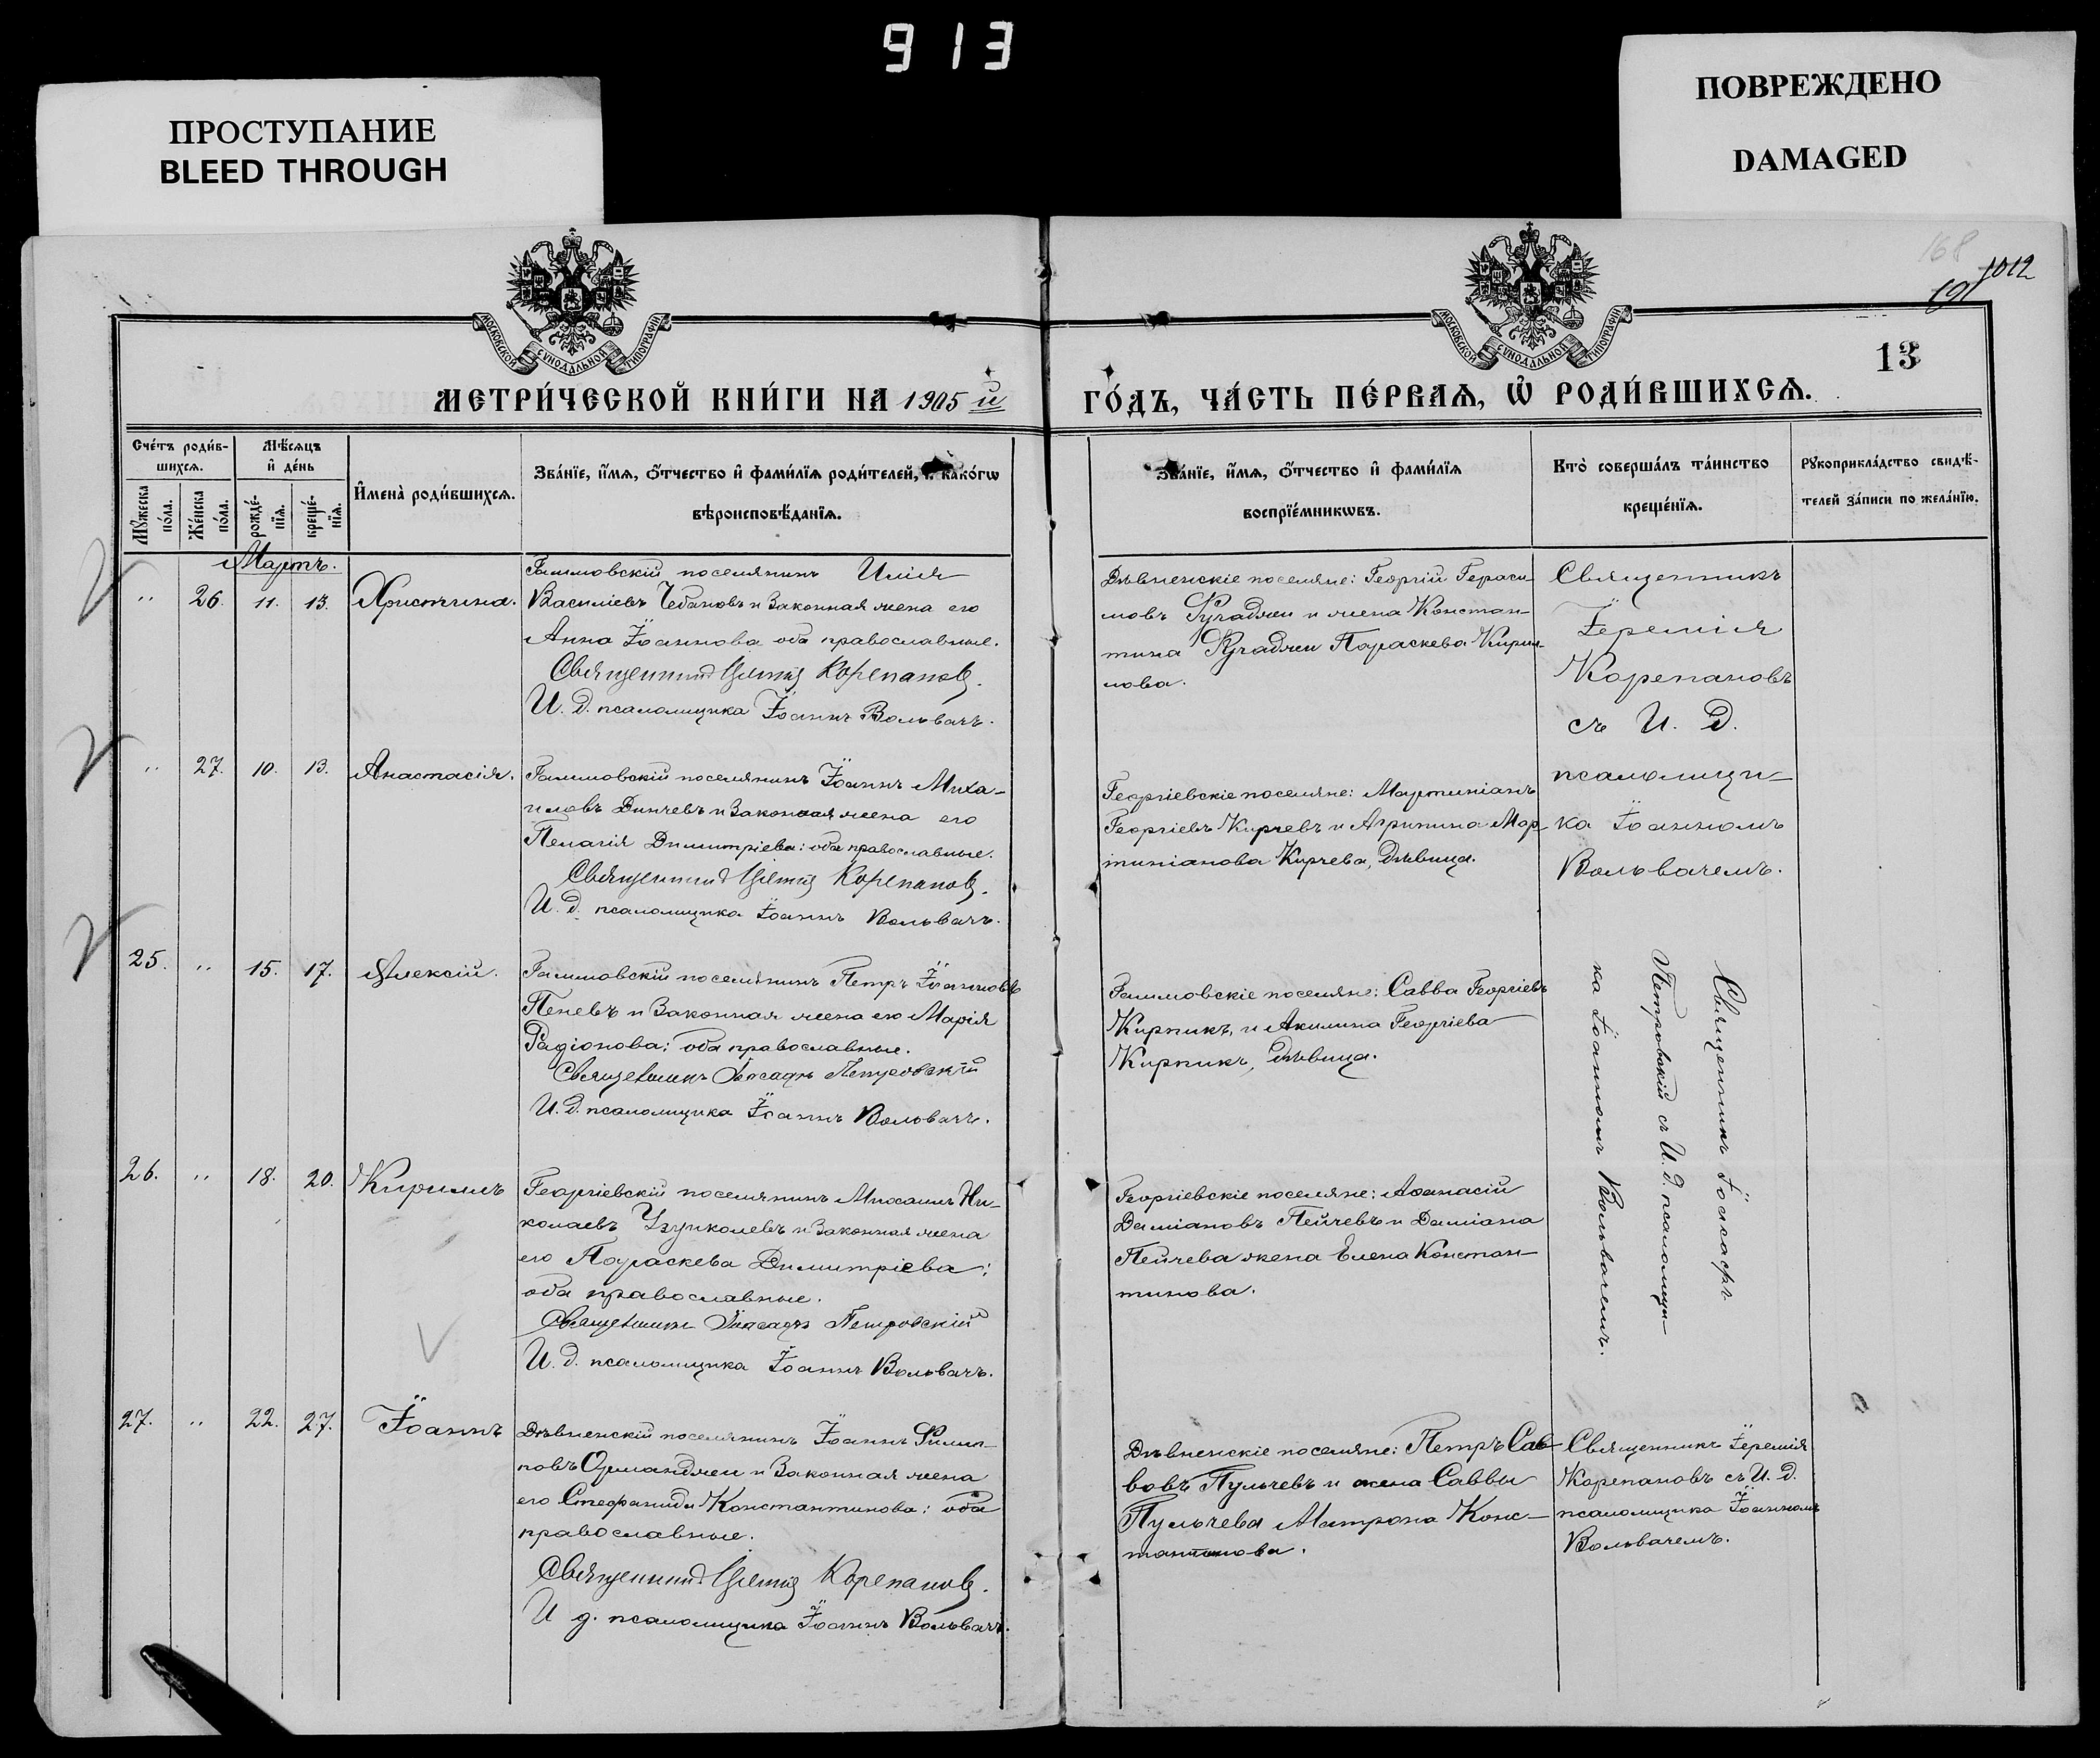 913
ПРОСТУПАНИЕ
BLEED THROUGH
ПОВРЕЖДЕНО
DAMAGED
168
1012
13
МОСКОВСКОЙ СѴНОДАЛЬНОЙ ТИПОГРАФІИ
МОСКОВСКОЙ СѴНОДАЛЬНОЙ ТИПОГРАФІИ
МЕТРИ́ЧЕСКОЙ КНИ́ГИ НА 1905 й
ГО́ДЪ, ЧА́СТЬ ПЕ́РВАѦ, Ѡ҆ РОДИ́ВШИХСѦ.
Сче́тъ роди́в-
шихсѧ.
Мꙋ́жеска по́ла.
Же́нска по́ла.
Мѣ́сѧцъ
и҆ де́нь
рожде́-
нїѧ.
креще́-
нїѧ.
И҆мена̀ роди́вшихсѧ.
Зва́нїе, и҆́мѧ, ѻ҆́тчество и҆ фами́лїѧ роди́телей, и҆ како́гѡ
вѣроисповѣ́данїѧ.
Зва́нїе, и҆́мѧ, ѻ҆́тчество и҆ фами́лїѧ
воспрїе́мникѡвъ.
Кто̀ соверша́лъ та́инство
креще́нїѧ.
Рꙋкоприкла́дство свидѣ́-
телей за́писи по жела́нїю.
Мартъ.
" 26. 11. 13. Христина.
Галиловскій поселянинъ Илія
Василіевъ Чебановъ и законная жена его
Анна Іоаннова оба православные.
Священникъ Іеремія Корепановъ.
И. д. псаломщика Іоаннъ Вольвачъ.
Дѣвненскіе поселяне: Георгій Гераси-
мовъ и жена Констан-
тина Параскева Кирил-
лова.
Священникъ
Іеремія
Корепановъ
съ И. Д.
псаломщи-
ка Іоанномъ
Вольвачемъ.
" 27. 10. 13. Анастасія.
поселянинъ Іоаннъ Миха-
иловъ Динчевъ и законная жена его
Пелагія Димитріева: оба православные.
Священникъ Іеремія Корепановъ.
И. д. псаломщика Іоаннъ Вольвачъ.
Георгіевскіе поселяне: Мартиніанъ
Георгіевъ Кирчевъ и Агрипина Мар-
тиніанова Кирчева, дѣвица.
25. " 15. 17. Алексій.
поселянинъ Петръ Іоанновъ
Пеневъ и законная жена его Марія
Радіонова: оба православные.
Священникъ Іоасафъ Петровскій
И. д. псаломщика Іоаннъ Вольвачъ.
поселяне: Савва Георгіевъ
Кирпикъ, и Акилина Георгіева
Кирпикъ, дѣвица.
Священникъ Іоасафъ
Петровскій съ И. д. псаломщи-
ка Іоанномъ Вольвачемъ.
26. " 18. 20. Кириллъ
Георгіевскій поселянинъ Ни-
колаевъ Узунколевъ и законная жена
его Параскева Димитріева:
оба православные.
Священникъ Іоасафъ Петровскій
И. д. псаломщика Іоаннъ Вольвачъ.
Георгіевскіе поселяне: Аѳанасій
Даміановъ Пейчевъ и Даміана
Пейчева жена Елена Констан-
тинова.
27. " 22. 27. Іоаннъ
Дѣвненскій поселянинъ Іоаннъ Филип-
повъ Орманджи и законная жена
его Стефанида Константинова: оба
православные.
Священникъ Іеремія Корепановъ.
И д. псаломщика Іоаннъ Вольвачъ.
Дѣвненскіе поселяне: Петръ Сав-
вовъ Пульчевъ и жена Саввы
Пульчева Матрона Конс-
тантинова.
Священникъ Іеремія
Корепановъ съ И. д.
псаломщика Іоанномъ
Вольвачемъ.